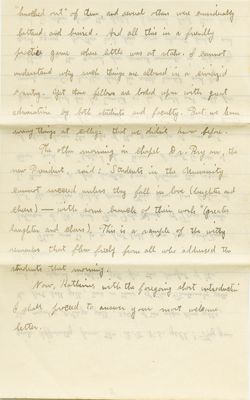 "knocked out" of them and several others were considerably
battered and bruised. And all this in a friendly
practice game where little was at stake. I cannot
understand why such things are allowed in a civilized
country. Yet these fellows are looked upon with great
admiration by both students and faculty. But we learn
many things at college that we didn't know before.
The other morning in chapel Dr. Bryan, the
new President, said: Students in the University
cannot succeed unless they fall in love (laughter and
cheers) — with some branch of their work (greater
laughter and cheers). This is a sample of the witty
remarks that flew freely from all who addressed the
students that morning.
Now, Katherine, with the foregoing short introduction
I shall proceed to answer your most welcome
letter.